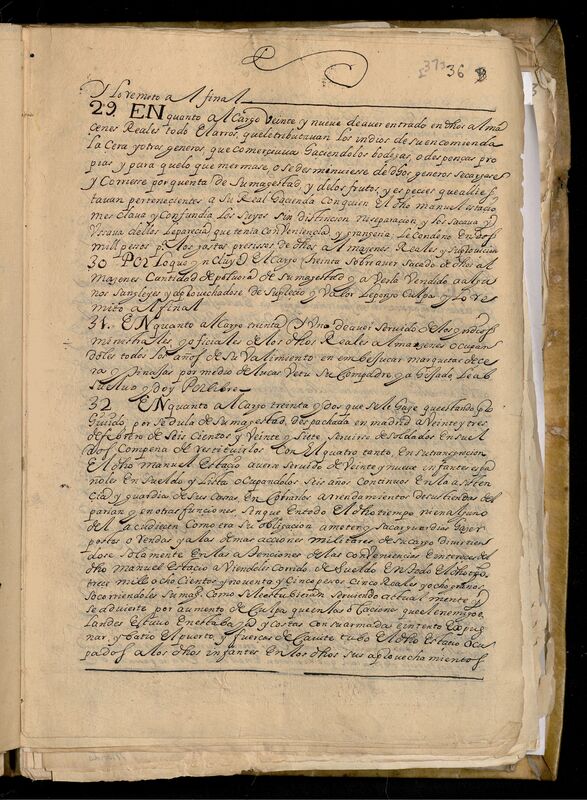 36
y lo remito a el final
29. EN quanto al Cargo Veinte y nueve de aver entrado en dhos alma
cenes Reales todo el arros, que le tributavan los indios de su encomienda
La Cera y otros generos, que comerciava haciendolos bodegas, o despenças pro
pias y para que lo que mermase, o se desmenuiese de dhos generos se cargase
y Corriese por quenta de Su magestad, y de los frutos, y especies que alli es
tavan pertenecientes a Su Real Hacienda Con quien El dho manuel estacio
mesclava y Confundia los suyos sin distincion ni separacion y los sacava y
Usava de ellos
mill pesos pa los gastos precisos de dhos almazenes Reales
30 POR Lo que yncluyD El Cargo treinta sobre aver sacado de dhos al
mazenes Cantidad de polvora de Su magestad y averla Vendido
y aprovechadose de Su precio y Valor Le pongo Culpa y Lo re
mito al final
31. EN quanto al Cargo treinta y Uno de aver servido de los yndios
menestrales y oficiales de los dhos Reales Almazenes ocupan
doles todos los años de Su Valimiento en embessucar marquetas de ce
ra por medio de lucas Vero su Compadre, y allegado, Le ab
suelvo y Doy Por libre
32 EN quanto al Cargo treinta y dos que se le haze que estando pro
hivido, por sedula de Su magestad, despachada en madrid a Veinte y tres
de febrero de Seis Cientos y Veinte y Siete servirse de soldados En suel
dos Compena de restituirlos Con El quatro tanto,
El dho manuel Estacio averse servido de Veinte y nueve infantes espa
ñoles En Sueldo y Lista ocupandolos Seis años Continuos En la asisten
cia y guardia de Sus Casas En Cobrarlos arrendamientos de sus tiendas del
parian y en otras funciones, Sin que En todo El dho tiempo
acudiesen Como era Su obligacion a meter y sacar guardias hazer
postas o Rondas y a las demas acciones militares de Su cargo divirtien
dose Solamente En las atenciones de las Conveniencias E intereses del
dho manuel Estacio a Viendoles Corrido El Sueldo En todo El dho tpo
trece mill ocho Cientos y noventa y Cinco pesos Cinco Reales y ocho granos
Socorriendoles Su mag. Como Si le estubieran Serviendo actual mente y
Se advierte por aumento de Culpa que en las ocaciones que el enemigo o
Landes Estuvo En esta baya y Costas Con su armada e intento Expug
nar, y batio El puerto y fuerças de Cavite tubo El dho Estacio ocu
pados a los dhos infantes En los dhos Sus aprovechamientos